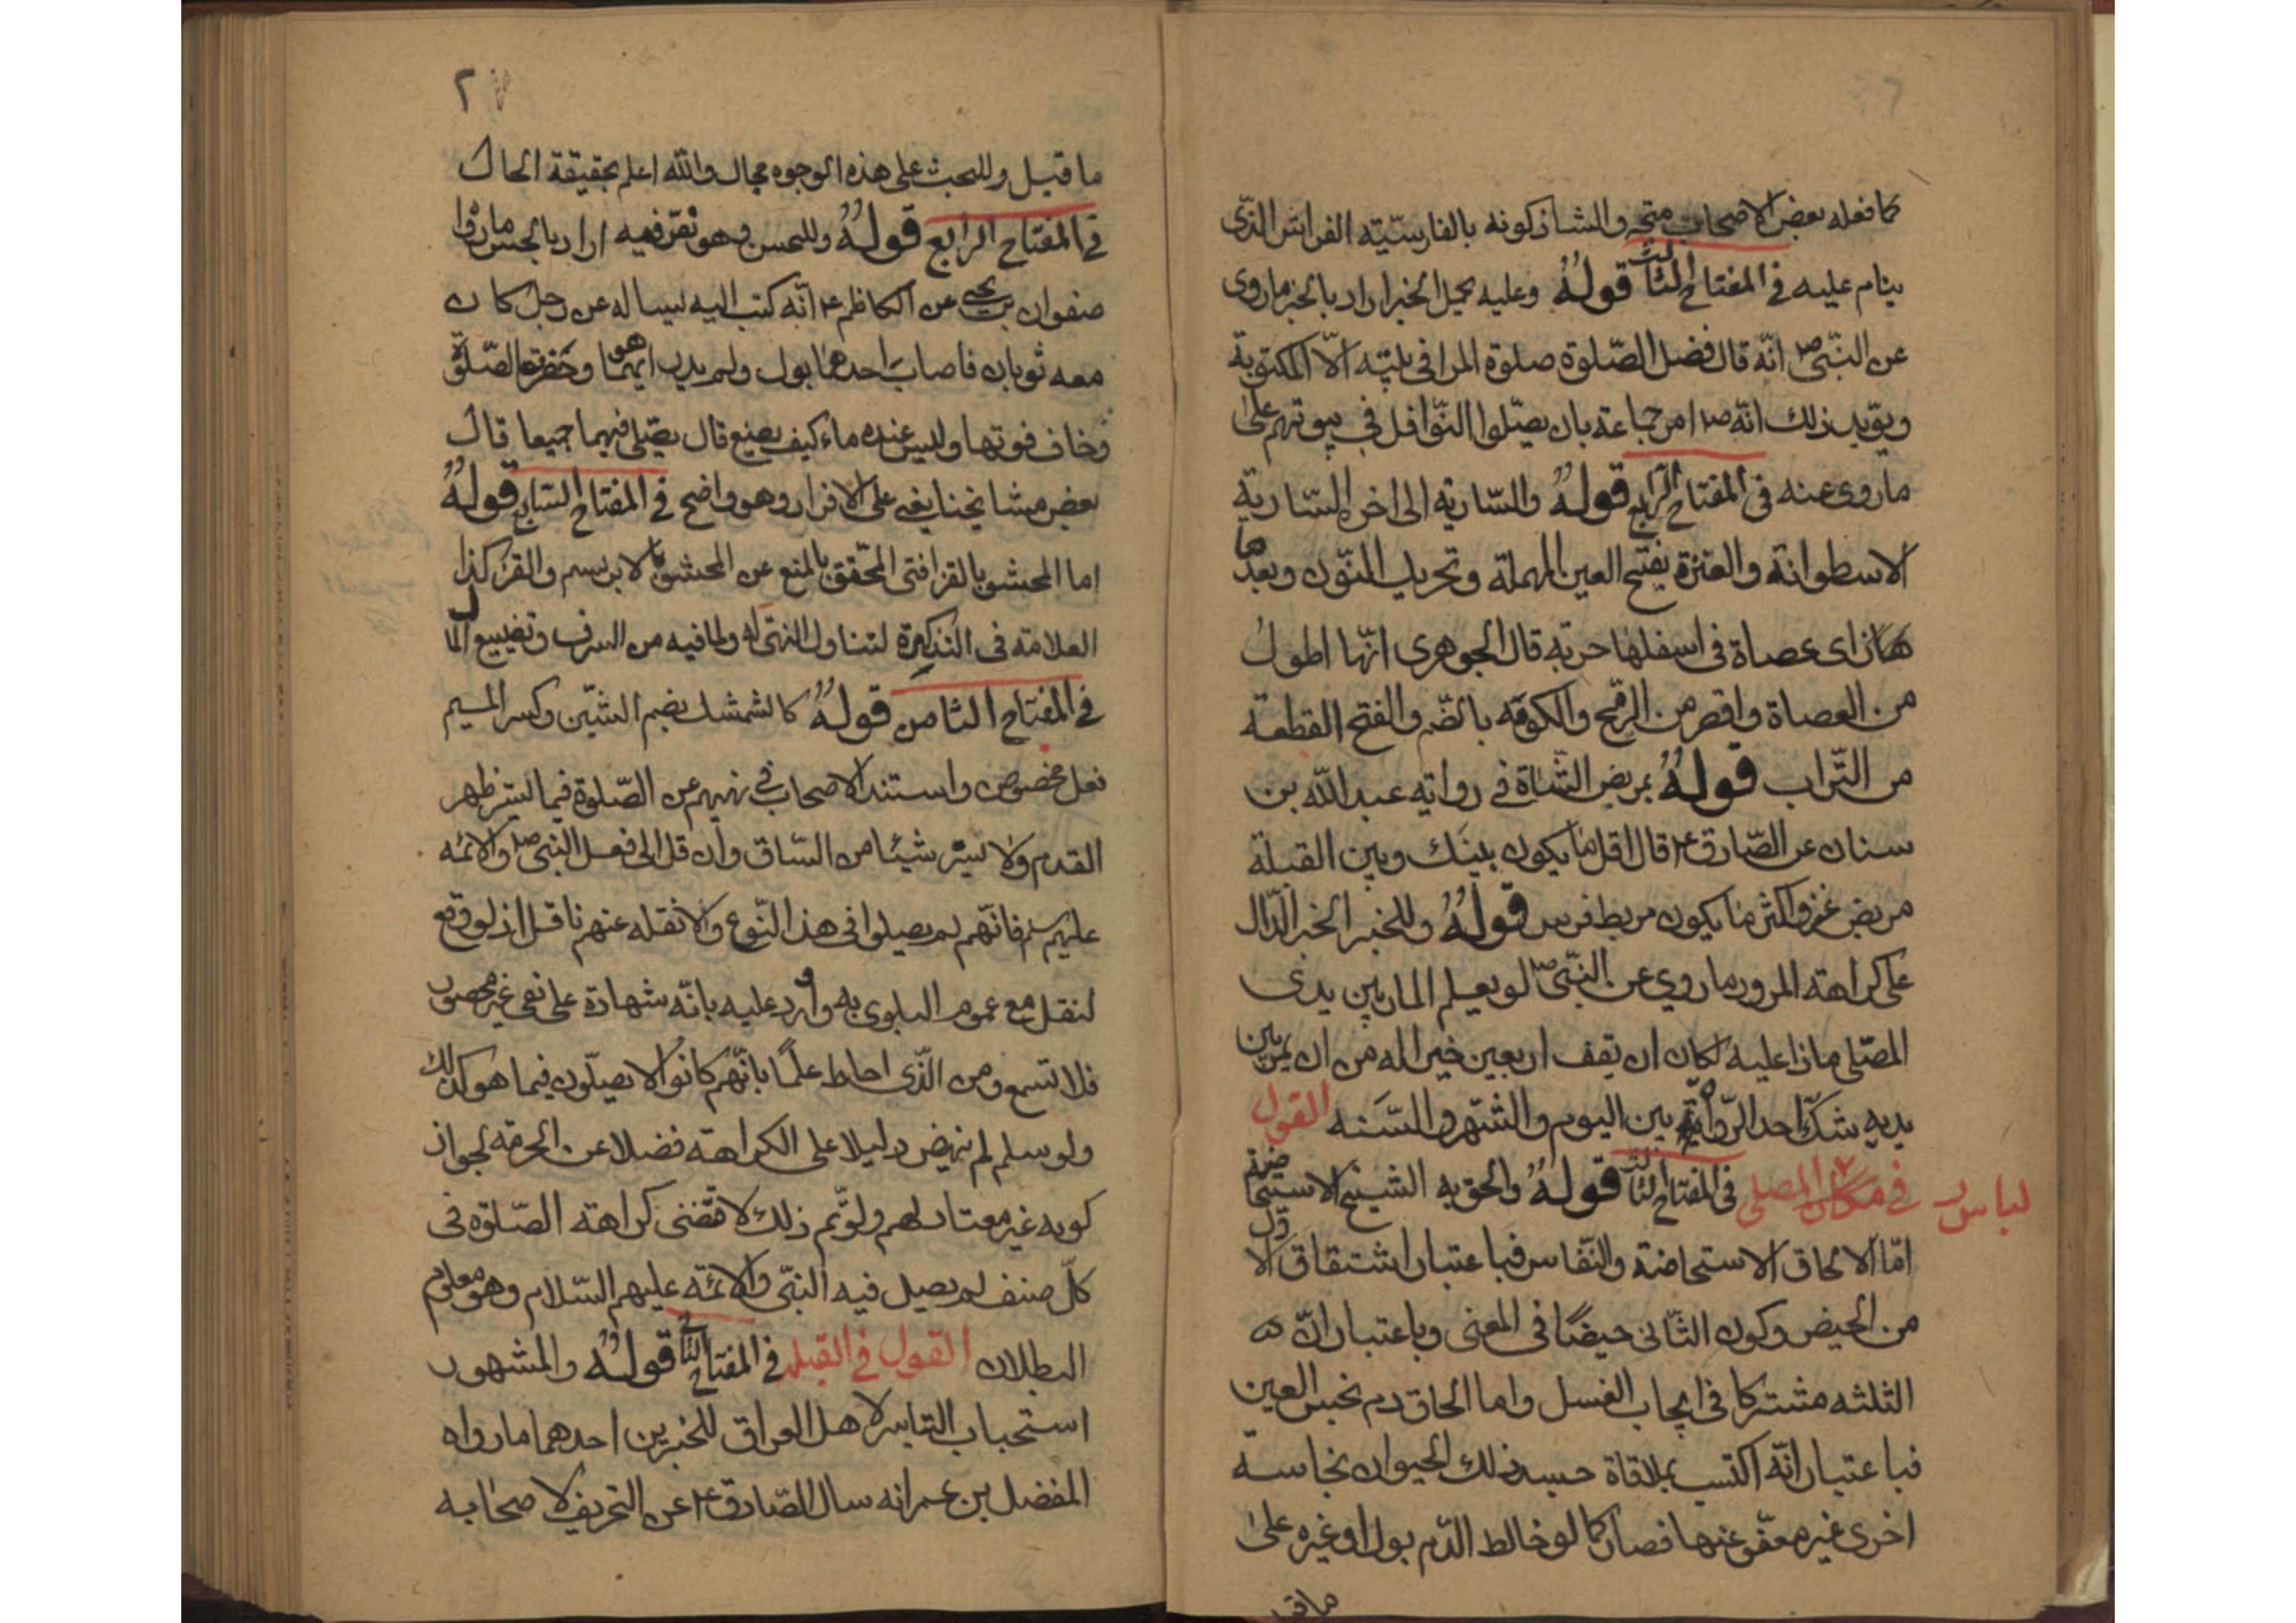 كما فعله بعض الاصحاب متجه والشاذكونه بالفارسيّة الفراش الذّى
ينام عليه فى المفتاح الثالث قولهُ وعليه يحمل الخبر اراد بالخبر ما روى
عن النبّى ص انّه قال افضل الصّلوة صلوة المرا فى بيته الّا المكتوبة
ويؤيد ذلك انّه ص امر جماعة بان يصلّوا النّوافل فى بيوتهم على
ما روى عنه فى المفتاح الرابع قولهُ والسّارية الى اخره السّارية
الاسطوانة والعنزة بفتح العين المهملة وتحريك النّون وبعدها
زاى عصاة فى اسفلها حربة قال الجوهرى انّها اطول
من العصاة واقصر من الرّمح والكومَة بالضّم والفتح القطعة
من التّراب قولهُ بمربض الشّاة فى رواية عبد اللّه بن
سنان عن الصّادق ع قال اقل ما يكون بينَك وبين القبلة
مربض عنز واكثر ما يكون مربط فرس قولهُ وللخبر الخبر الدّال
على كراهة المرور ما روي عن النبّى ص لو يعلم المار بين يدى
المصلّى ماذا عليه لكان ان يقف اربعين خير اله من ان يمرّ بين
يديه شكّ احد الرّواة بين اليوم والشّهر والسَّنه القول
فى مكان المصلى لباس فى المفتاح الثالث قولهُ والحق به الشيخ الاستحاضة
امّا الالحاق الاستحاضة والنّفاس فباعتبار اشتقاق الاوّل
من الحيض وكون الثّانى حيضًا فى المعنى وباعتبار انّ
الثلثه مشتركا فى ايجاب الغسل واما الحاق دم نجس العين
فباعتبار انّه اكتسب بملاقاة جسد ذلك الحيوان نجاسة
اخرى غير معفّو عنها فصار كما لو خالط الدّم بول او غيره على
ما قيل
٢٧
ما قيل وللبحث على هذه الوجوه مجال واللّه اعلم بحقيقة الحال
فى المفتاح الرابع قولهُ وللحسن وهو نصّ فيه اراد بالحسن ما رواه
صفوان بن يحيى عن الكاظم ع انّه كتب اليه يساله عن رجل كان
معه ثوبان فاصابَ احدهما بول ولم يدر ايهما هو وحَضرت الصّلوة
وخاف فوتها وليس عنده ماء كيف يصنع قال يصّلى فيهما جميعا قال
بعض مشايخنا يعنى على الانفراد وهو واضح فى المفتاح السّابع قولهُ
اما المحشو بالقز افتى المحّقق بالمنع عن المحشو بالابريسم والقز وكذا
العلامة فى التذكرة لتناول النهى له ولما فيه من السرف وتضييع المال
فى المفتاح الثامن قولهُ كالشمشك بضم الشّين وكسر الميم
نعل مخصوص واستند الاصحاب فى نهيهم عن الصّلوة فيما يستر ظهر
القدم ولا يستر شيئا من السّاق وان قل الى فعل النبّى ص والائمه
عليهم سلم فانّهم لم يصلوا فى هذا النّوع ولا نقله عنهم ناقل اذ لو وقع
لنقل مع عموم البلوى به واورد عليه بانّه شهادة على نفى غير محصور
فلا تسمع ومن الّذى احاط علمًا بانّهم كانوا لا يصلّون فيما هو كذلك
ولو سلم لم ينهض دليلا على الكراهة فضلا عن الحرمة لجواز
كونه غير معتاد لهم ولو تم ذلك لاقتضى كراهة الصّلوة فى
كلّ صنف لم يصل فيه النبّى والائمّه عليهم السّلام وهو معلوم
البطلان القول فى القبله فى المفتاح قولهُ والمشهور
استحباب التياسر لاهل العراق للخبرين احدهما ما رواه
المفضل بن عمر انه سال الصّادق ع عن التحريف لاصحابه